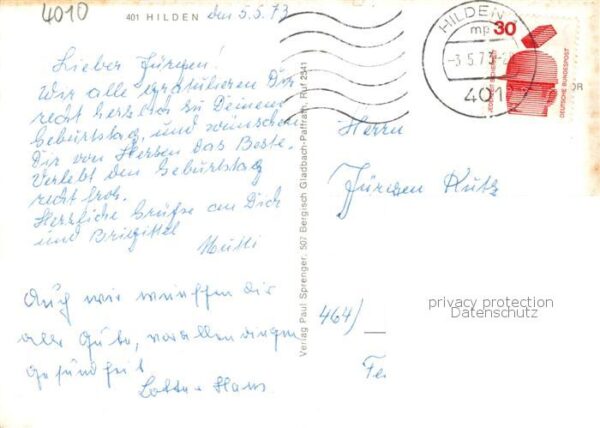 4010
401 HILDEN den 5.5.73
Lieber Jürgen!
Wir alle gratulieren Dir
recht herzlich zu Deinem
Geburtstag, und wünschen
Dir von Herzen das Beste.
Verlebt den Geburtstag
recht froh.
Herzliche Grüße an Dich
und Brigittel
Mutti
Auch wir wünschen dir
alles Gute, vor allen dingen
gesundheit
Lotte + Hans
Verlag Paul Sprenger, 507 Bergisch Gladbach-Paffrath, Ruf 2541
HILDEN 1
mp
-3.5.73-2
401
30
DEUTSCHE BUNDESPOST
JEDERZEIT SICHERHEIT
OR
Herrn
Jürgen Kutz
464/
Fe
privacy protection
Datenschutz